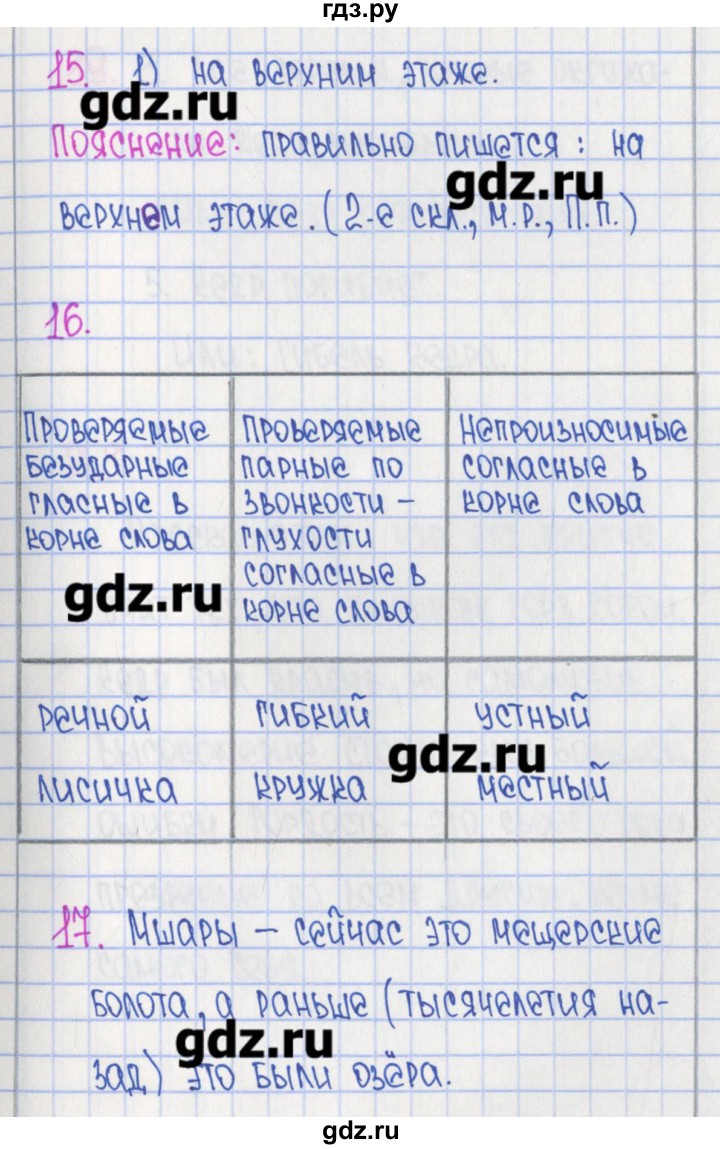 гдз.ру
15. 1) на верхним этаже.
gdz.ru
Пояснение: правильно пишется: на
gdz.ru
верхнем этаже. (2-е скл., м.р., П.п.)
16.
Проверяемые безударные гласные в корне слова
Проверяемые парные по звонкости – глухости согласные в корне слова
Непроизносимые согласные в корне слова
gdz.ru
речной
гибкий
устный
gdz.ru
лисичка
кружка
местный
17. Мшары – сейчас это мещерские
болота, а раньше (тысячелетия на-
gdz.ru
зад) это были озёра.
gdz.ru